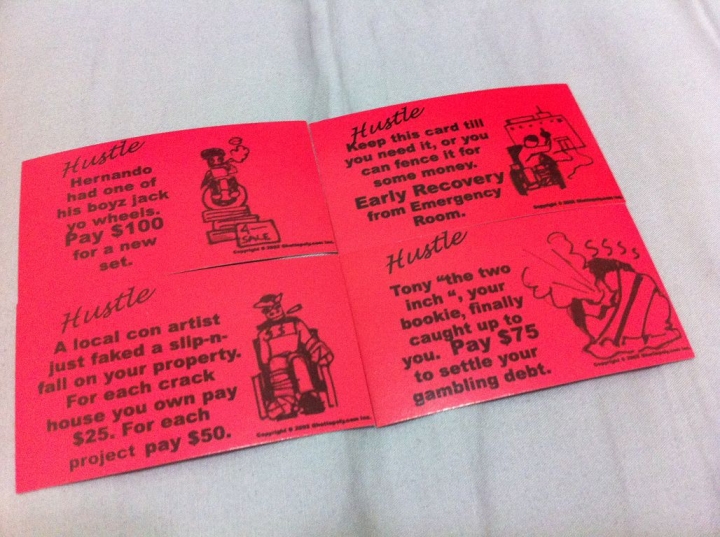 Hustle
Hernando
had one of
his boyz jack
yo wheels.
Pay $100
for a new
set.
4
SALE
Copyright © 2002 Ghettopoly.com Inc.
Hustle
Keep this card till
you need it, or you
can fence it for
some money.
Early Recovery
from Emergency
Room.
Copyright © 2002 Ghettopoly.com Inc.
Hustle
A local con artist
just faked a slip-n-
fall on your property.
For each crack
house you own pay
$25. For each
project pay $50.
Copyright © 2002 Ghettopoly.com Inc.
Hustle
Tony “the two
inch “, your
bookie, finally
caught up to
you. Pay $75
to settle your
gambling debt.
SSSS
Copyright © 2002 Ghettopoly.com Inc.